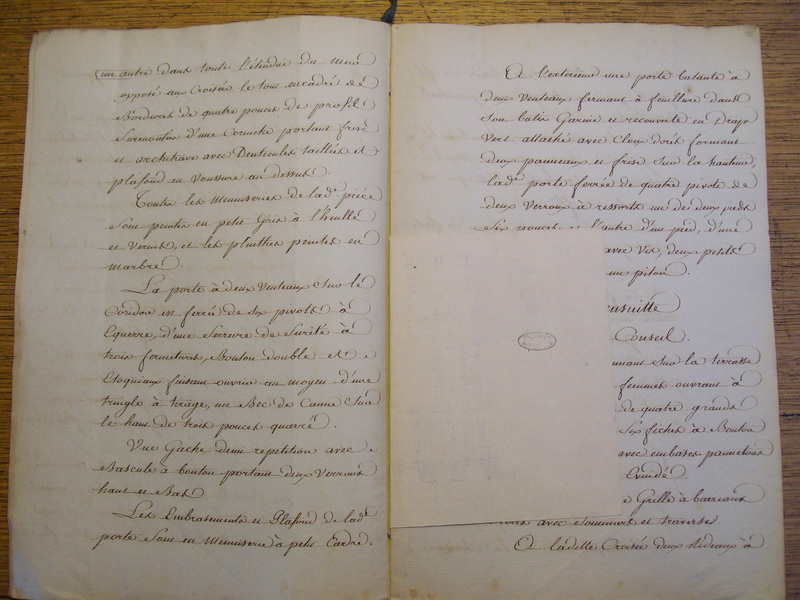 un autre dans toute l'étendue du mur
opposé aux Croisées le tout encadré de
Bordures de quatre pouces de profil
Surmontés d'une Corniche portant frise
et architrave avec Denticules taillés et
plafond en Voussure au dessus.
Toutes les Menuiseries de lad.e pièce
Sont peintes en petit Gris à l'huille
et Vernis, et les plinthes peintes en
marbre.
La porte à deux Venteaux Sur le
Coridor est ferrée de six pivots à
Equerre, d'une Serrure de Sureté à
trois fermetures, Bouton double et
faisant ouvrir au moyen d'une
tringle à tirage, un Bec de Canne Sur
le haut de trois pouces quarré.
Une Gache demi repetition avec
Bascule à bouton portant deux Verrouils
haut et Bas
Les Embrasements et Plafond de lad.e
porte Sont en Menuiserie à petit Cadre.
A l'exterieur une porte batante à
deux Venteaux fermant à feuillure dans
Son batis Garnie et recouverte en Drap
Vert attaché avec Cloux dorés formant
deux panneaux et frise Sur la hauteur,
lad.e porte ferrée de quatre pivots de
deux Verroux à ressorts un de deux pieds
Six pouces et l'autre d'un pied, d'une
avec Vis, deux petits
un piton.
Conseil.
Sur la terrasse
femmes ouvrant à
de quatre grands
Six fiches à Bouton
avec embases
Evuidé
Grille à barreaux
avec Sommiers et traverses
A laditte Croisée deux Rideaux à